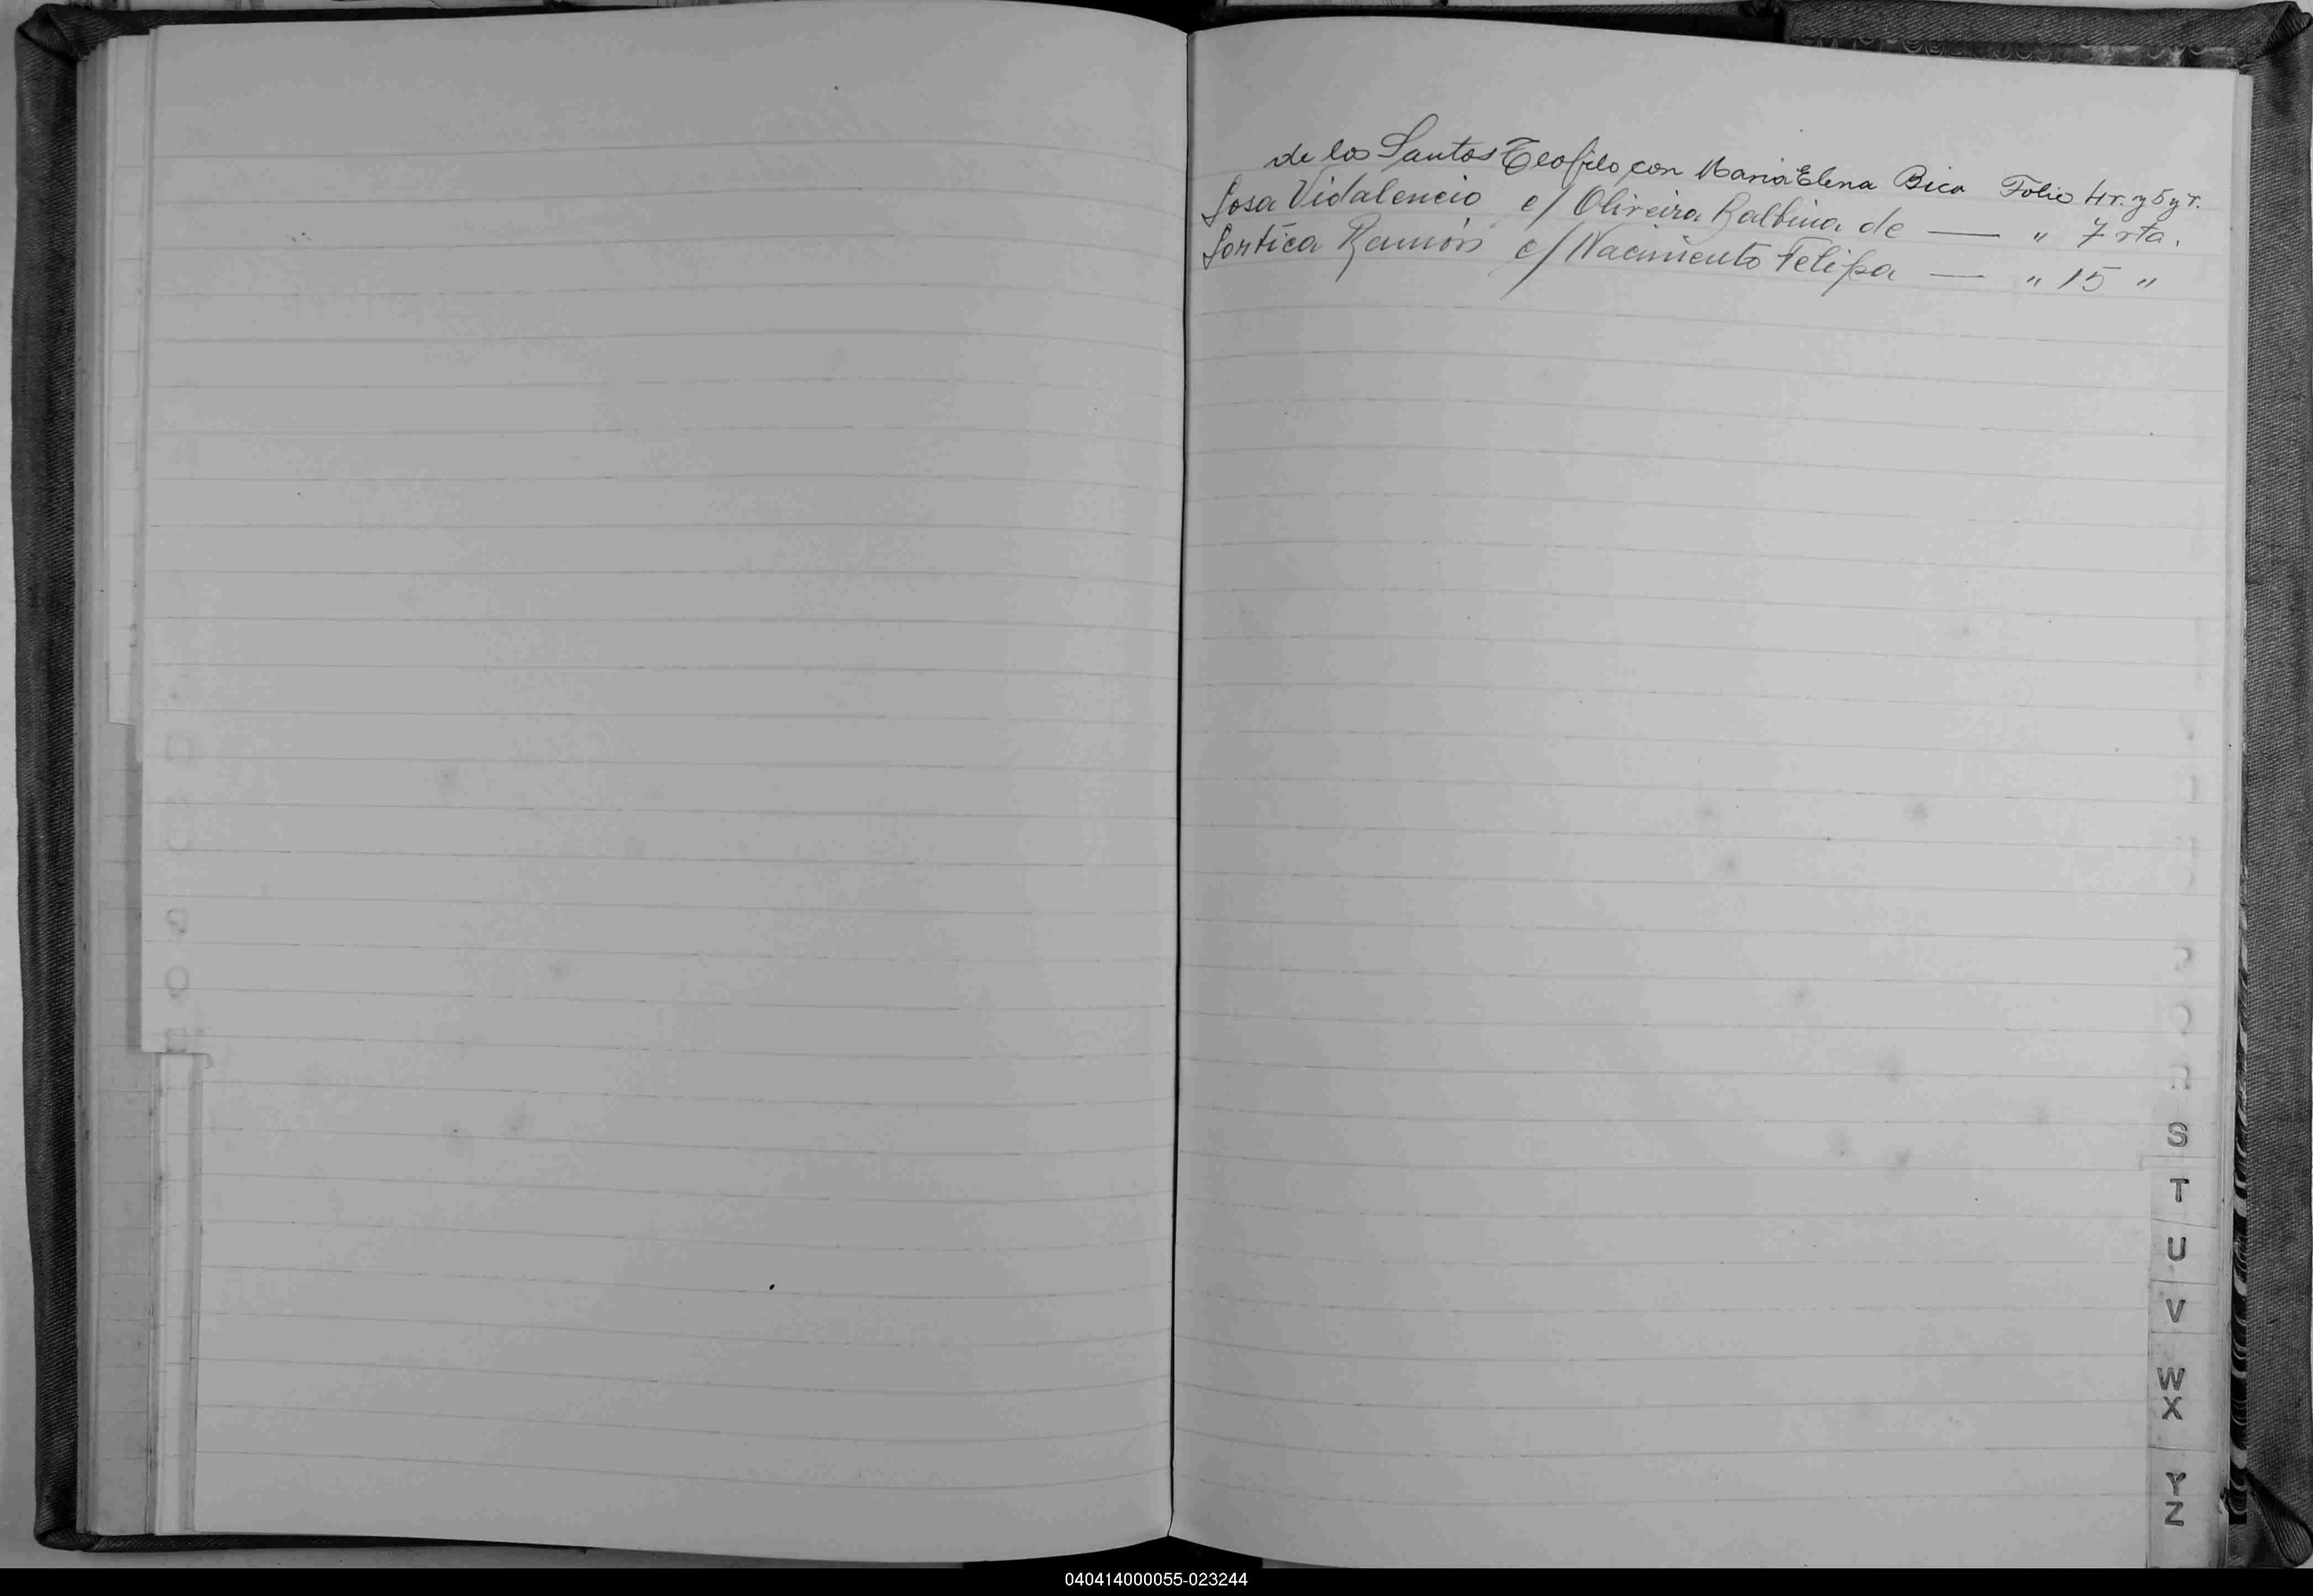 de los Santos Teofilo con Maria Elena Bica Folio 4 r. y 5 y r.
Sosa Vidalencio c/ Oliveira Balbina de — " 7 vta.
Sortica Ramón c/ Nacimiento Felipa — " 15 "
S
T
U
V
W
X
Y
Z
040414000055-023244